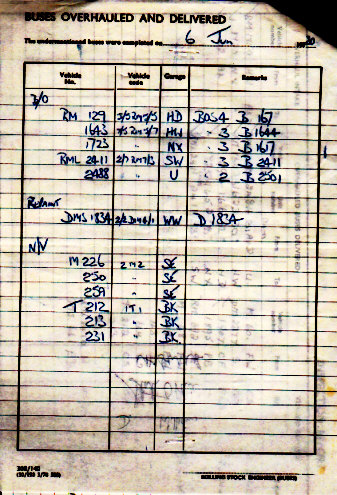 BUSES OVERHAULED AND DELIVERED
The undermentioned buses were completed on 6 Jun 1980
Vehicle No. Vehicle code Garage Remarks
B/O
RM 129 5/5 2RM 5/5 HD BOS4 B 167
1643 HW " 3 B 1644
1723 " NX " 3 B 1617
RML 2411 SW " 3 B 2411
2488 " U " 2 B 2501
Repaint
DMS 1834 WW D 1834
N/V
M 226 2M2 SE
250 " SE
259 " SE
T 212 1T1 BK
213 " BK
231 " BK
ROLLING STOCK ENGINEER (BUSES)